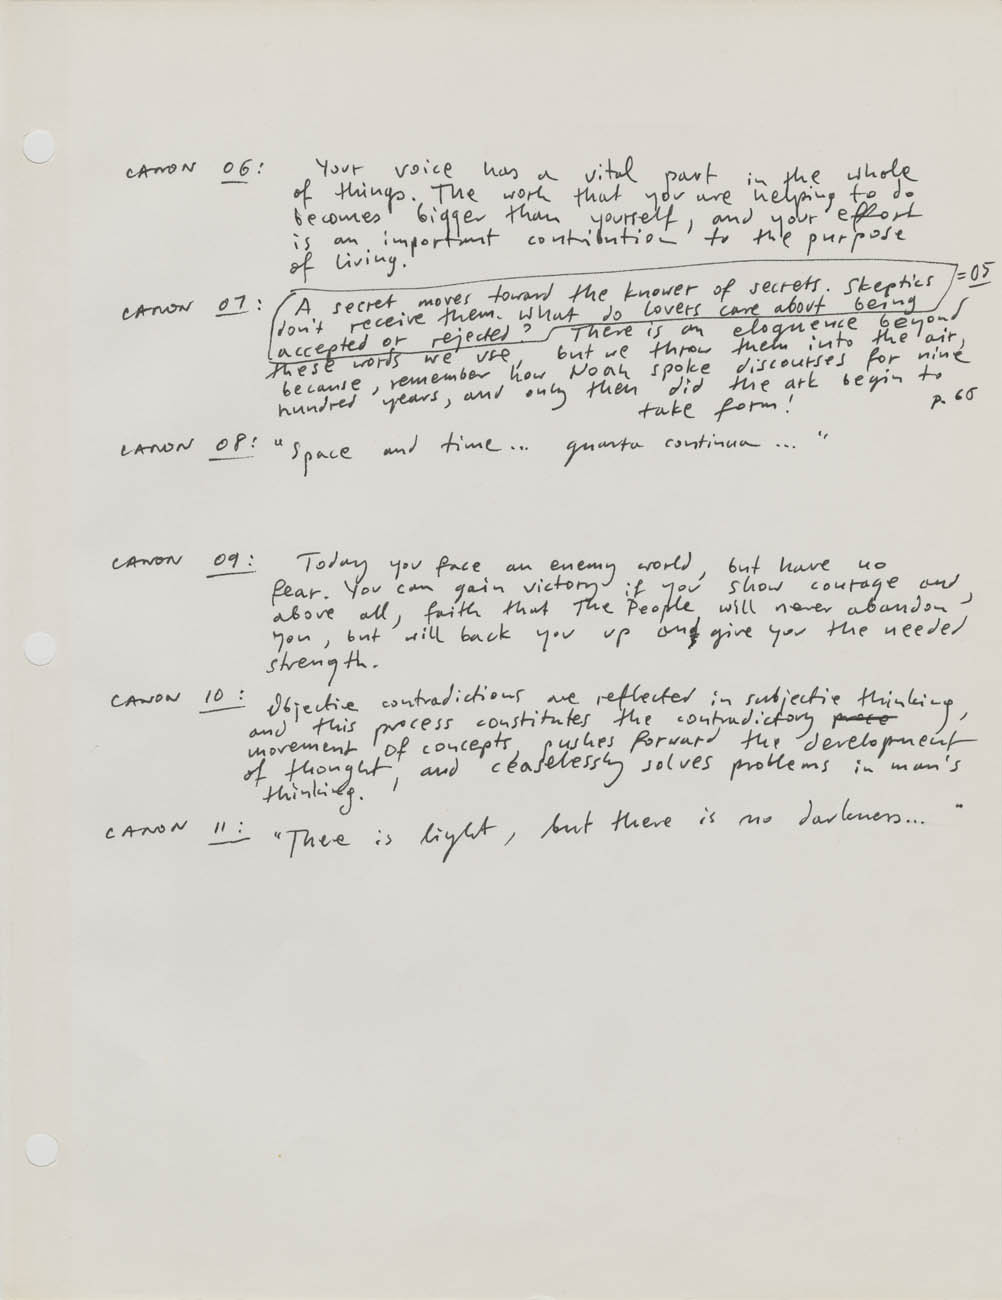 CANON 06: Your voice has a vital part in the whole
of things. The work that you are helping to do
becomes bigger than yourself, and your effort
is an important contribution to the purpose
of living.
CANON 07: A secret moves toward the knower of secrets. Skeptics = 05
don't receive them. What do lovers care about being
accepted or rejected? There is an eloquence beyond
these words we use, but we throw them into the air,
because, remember how Noah spoke discourses for nine
hundred years, and only then did the ark begin to
take form! p. 65
CANON 08: "Space and time... quarta continua..."
CANON 09: Today you face an enemy world, but have no
fear. You can gain victory if you show courage and,
above all, faith that The People will never abandon
you, but will back you up and give you the needed
strength.
CANON 10: Objective contradictions are reflected in subjective thinking,
and this process constitutes the contradictory
movement of concepts, pushes forward the development
of thought, and ceaselessly solves problems in man's
thinking.
CANON 11: "There is light, but there is no darkness..."